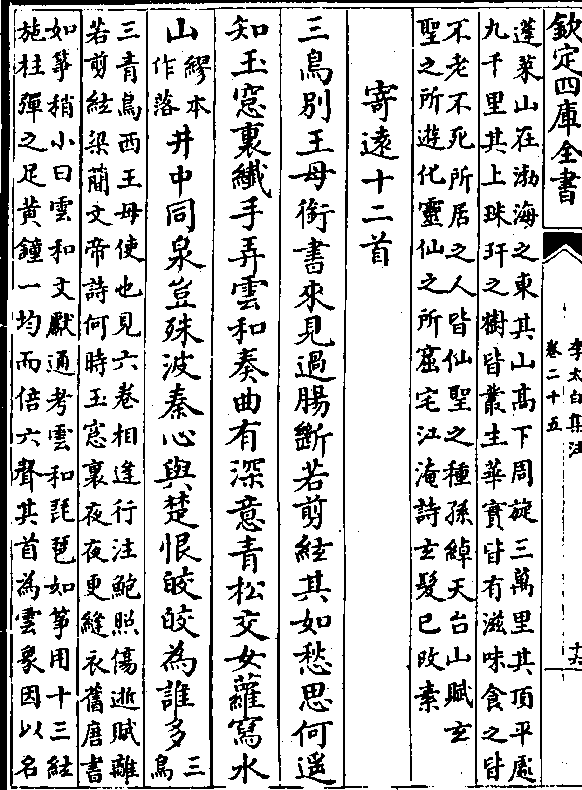 欽定四庫全書
李太白集注
卷二十五
蓬萊山在渤海之東其山高下周旋三萬里其頂平處
九千里其上珠玕之樹皆叢生華實皆有滋味食之皆
不老不死所居之人皆仙聖之種孫綽天台山賦玄
聖之所遊化靈仙之所窟宅江淹詩玄髮已改素
寄遠十二首
三鳥別王母銜書來見過腸斷若剪絃其如愁思何遥
知玉窓裏纎手弄雲和奏曲有深意青松交女蘿寫水
山
繆本
作落
井中同泉豈殊波秦心與楚恨皎皎為誰多
三
鳥
三青鳥西王母使也見六卷相逢行注鮑照傷逝賦離
若剪絃梁簡文帝詩何時玉窓裏夜夜更縫衣舊唐書
如箏稍小曰雲和文獻通考雲和琵琶如箏用十三絃
施柱彈之足黄鐘一均而倍六聲其首為雲象因以名